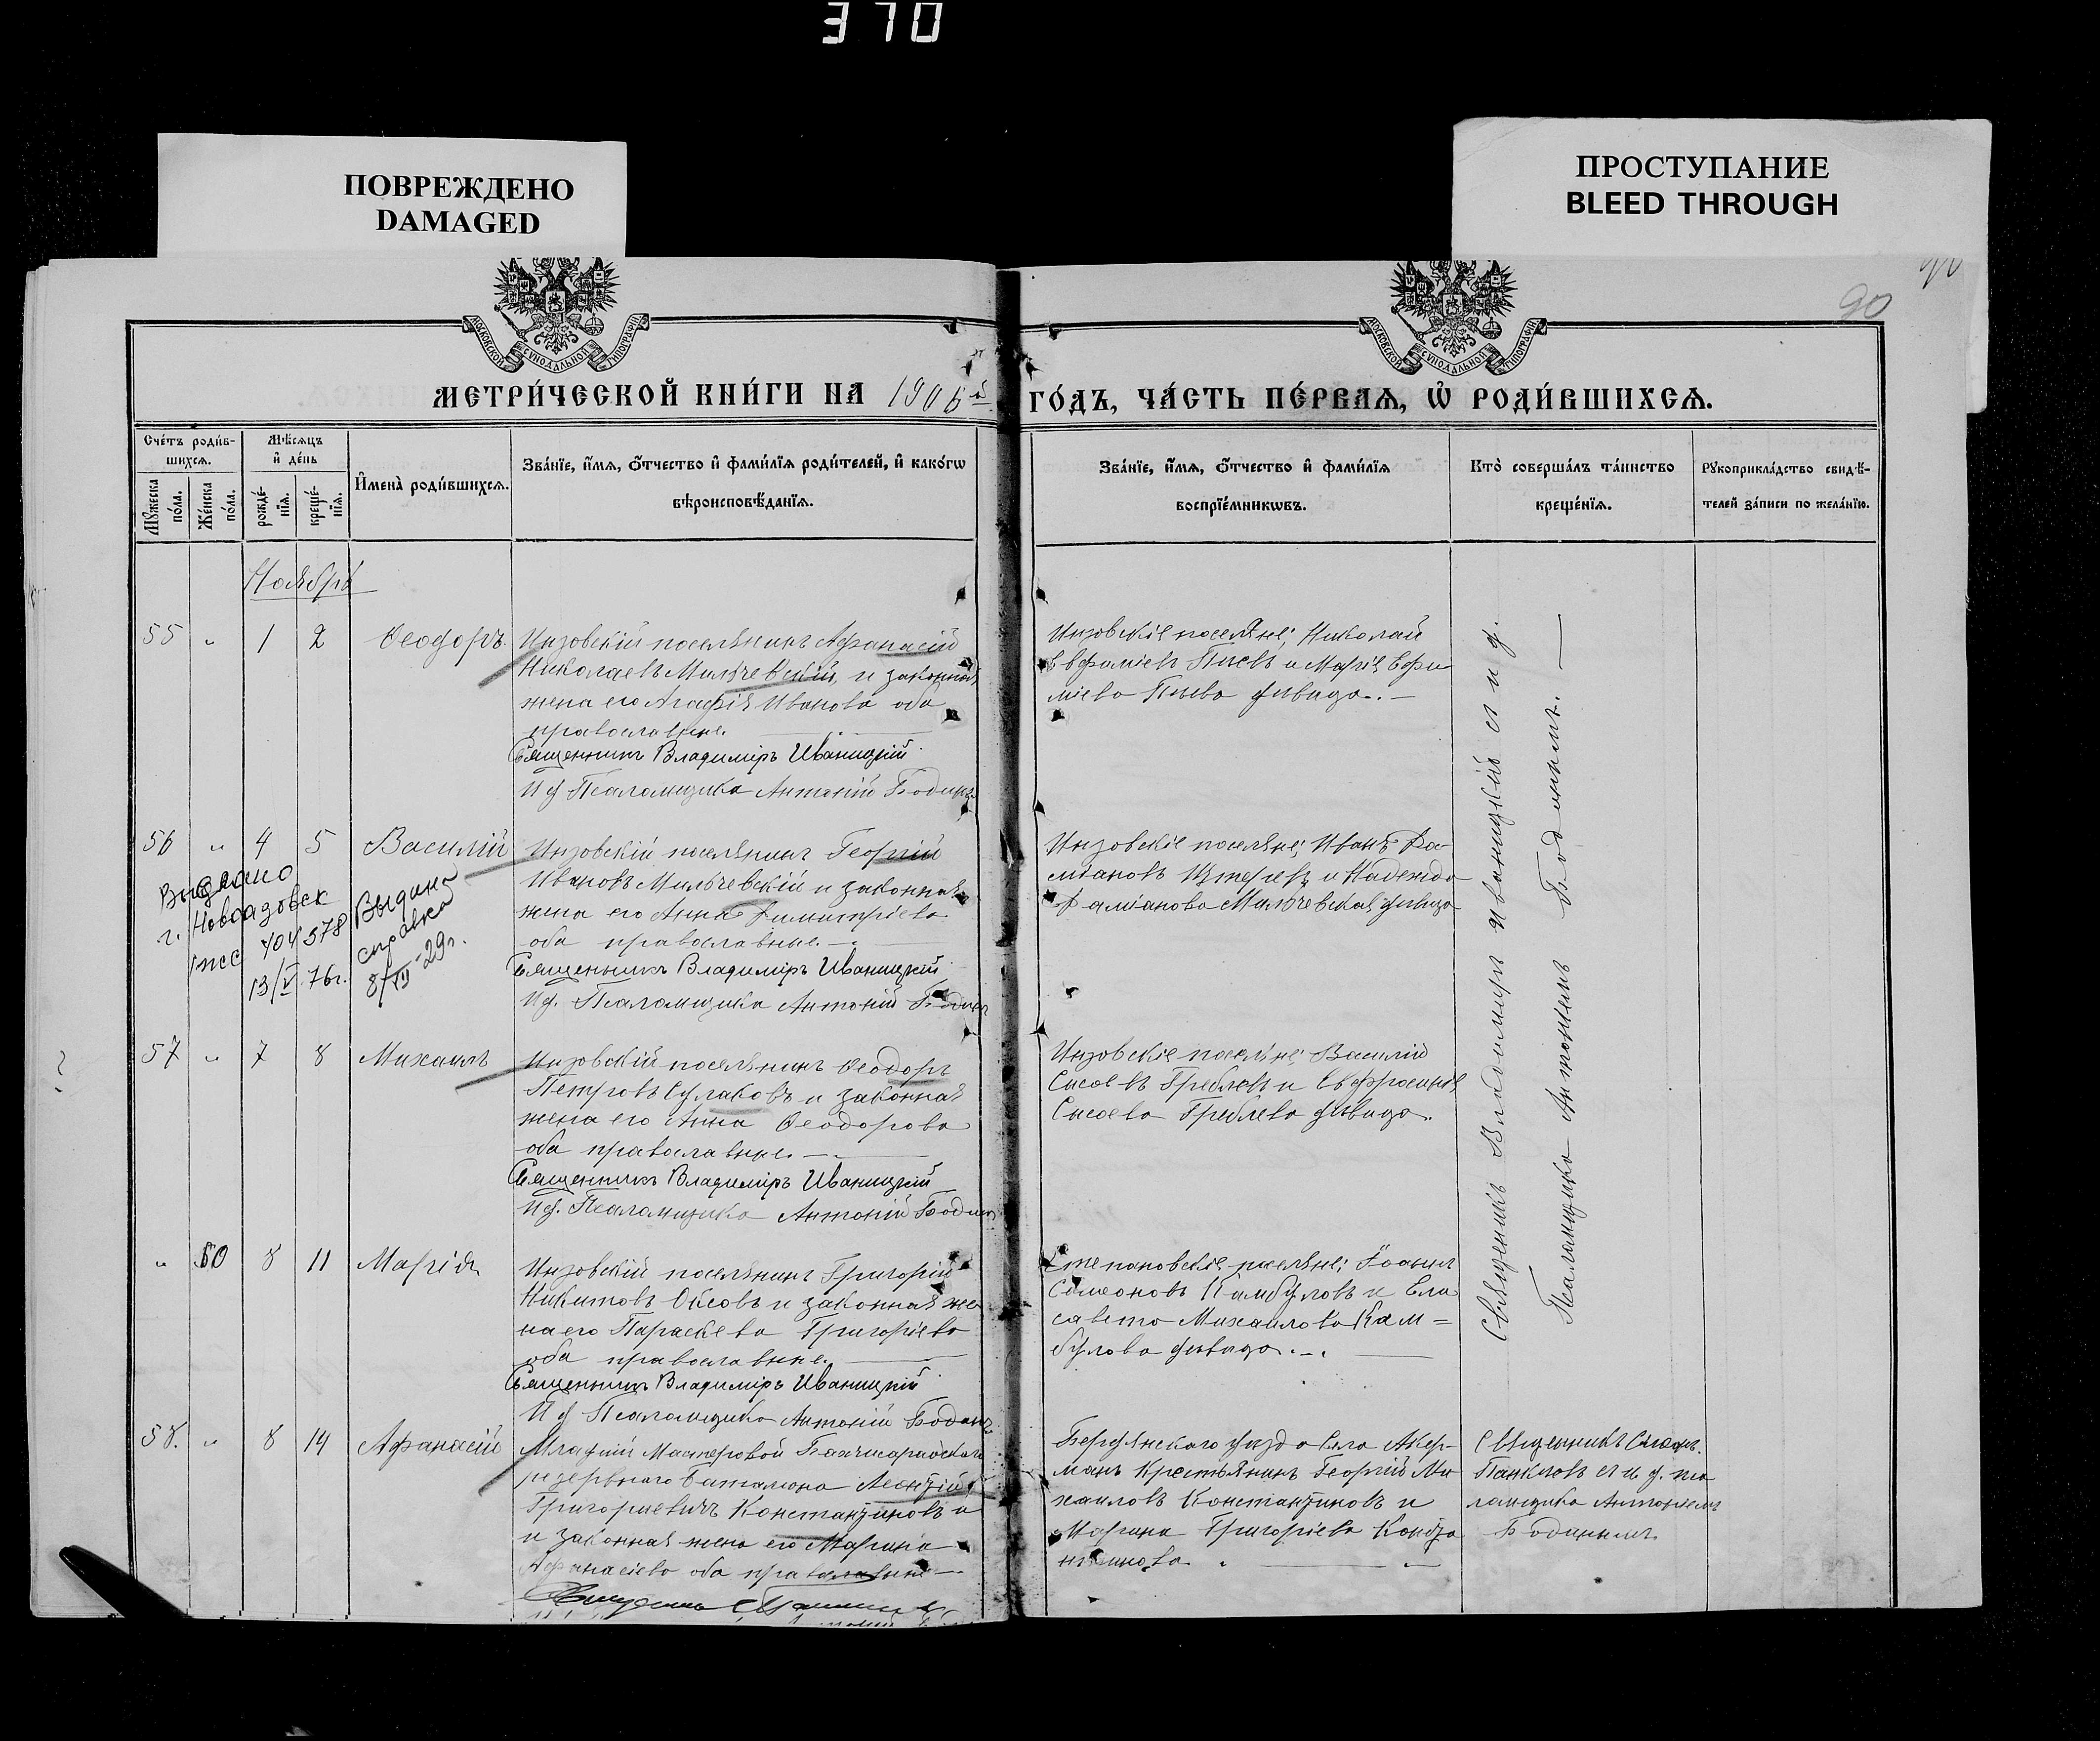 370
ПОВРЕЖДЕНО
DAMAGED
ПРОСТУПАНИЕ
BLEED THROUGH
90
МОСКОВСКОЙ СѴНОДАЛЬНОЙ ТИПОГРАФІИ
МОСКОВСКОЙ СѴНОДАЛЬНОЙ ТИПОГРАФІИ
МЕТРИ́ЧЕСКОЙ КНИ́ГИ НА 1906й ГО́ДЪ, ЧА́СТЬ ПЕ́РВАѦ, Ѽ РОДИ́ВШИХСѦ.
Сче́тъ роди́в-
шихсѧ.
Мꙋ́жеска по́ла.
Же́нска по́ла.
Мѣ́сѧцъ
и҆ де́нь
рожде́-
нїѧ.
креще́-
нїѧ.
И҆мена̀ роди́вшихсѧ.
Зва́нїе, и҆́мѧ, ѻ҆́тчество и҆ фами́лїѧ роди́телей, и҆ како́гѡ
вѣроисповѣ́данїѧ.
Зва́нїе, и҆́мѧ, ѻ҆́тчество и҆ фами́лїѧ
воспрїе́мникѡвъ.
Кто̀ соверша́лъ та́инство
креще́нїѧ.
Рꙋкоприкла́дство свидѣ́-
телей за́писи по жела́нїю.
Ноябрь
55 " 1 2 Ѳеодоръ.
Инзовскій поселянинъ Афанасій
Николаевъ Мильчевскій и законная
жена его Агафія Иванова оба
православные.
Священникъ Владиміръ Иваницкій
И д Псаломщика Антоній Бодинъ
Инзовскіе поселяне; Николай
Евфиміевъ Пневъ и Марія Ефи
міева Пнева дѣвица.
56 " 4 5 Василій
Выдано
г. Новоазовск
404378
13/V 76г.
Выдана
справка
8/XII-29г.
Инзовскій поселянинъ Георгій
Ивановъ Мильчевскій и законная
жена его Анна Димитріева
оба православные.
Священникъ Владиміръ Иваницкій
И д. Псаломщика Антоній Бодинъ
Инзовскіе поселяне; Иванъ Да-
міановъ и Надежда
Даміанова Мильчевская дѣвица
57 " 7 8 Михаилъ
Инзовскій поселянинъ Ѳеодоръ
Петровъ Сулаковъ и законная
жена его Анна Ѳеодорова
оба православные.
Священникъ Владиміръ Иваницкій
И д. Псаломщика Антоній Бодинъ
Инзовскіе поселяне; Василій
Сисоевъ Греблевъ и Евфросинія
Сисоева Греблева дѣвица.
" 50 8 11 Марія
Инзовскій поселянинъ Григорій
Никитовъ и законная же
на его Параскева Григоріева
оба православные.
Священникъ Владиміръ Иваницкій
И д Псаломщика Антоній Бодинъ
Степановскіе поселяне; Іоаннъ
Симеоновъ Камбуловъ и Ели
савета Михаилова Кам=
булова дѣвица.
Священникъ Владиміръ Иваницкій съ и д.
Псаломщика Антоніемъ Бодинымъ.
58. " 8 14 Афанасій
Младшій Мастеровой
резервнаго баталіона Леонтій
Григорьевичъ Константиновъ и
и законная жена его Марина
Афанасіева оба православные
Бердянскаго уѣзда села Акер-
манъ Крестьянинъ Георгій Ми
хаиловъ Константиновъ и
Марина Григоріева Конста
нтинова.
Священникъ
съ и д. пса
ломщика Антоніемъ
Бодинымъ